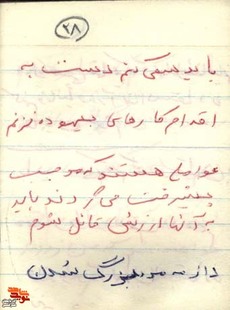 ۲۸
باید سعی کنم دست به
اقدام کارهای بیهوده نزنم
عواملی هستند که موجب
پیشرفت می‌گردند باید
به آنها ارزش قائل شوم
راز
بزرگ شدن